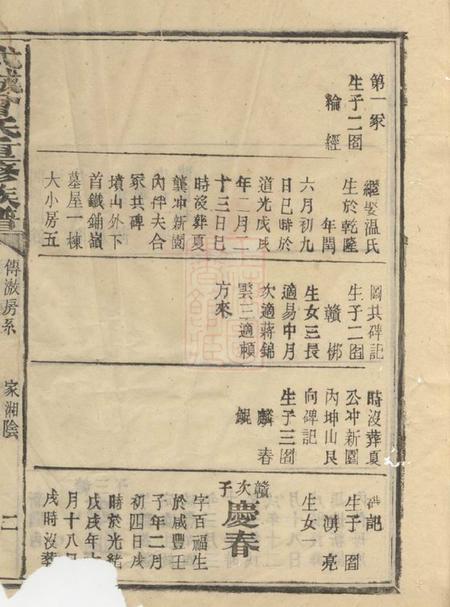 第一冢
生子二圖
綸 經
繼娶温氏
生於乾隆
年閏
六月初九
日巳時於
道光戊戌
年二月
十三日巳
時沒葬夏
龔冲新圖
內伴夫合
冢共碑
墳山外下
首鐵鋪嶺
墓屋一棟
大小房五
圖共碑記
生子二圖
贛 梆
生女三長
適易中月
次適蔣錦
雲三適賴
方來
時沒葬夏
公冲新圖
內坤山艮
向碑記
生子三圖
麟 春
鯤
碑記
生子圖
湧 亮
生女一
贛次子
慶春
字百福生
於咸豐壬
子年二月
初四日戌
時於光緒
戊戌年
月十八日
戌時沒葬
氏重修族譜
傳 房系
家湘陰
二